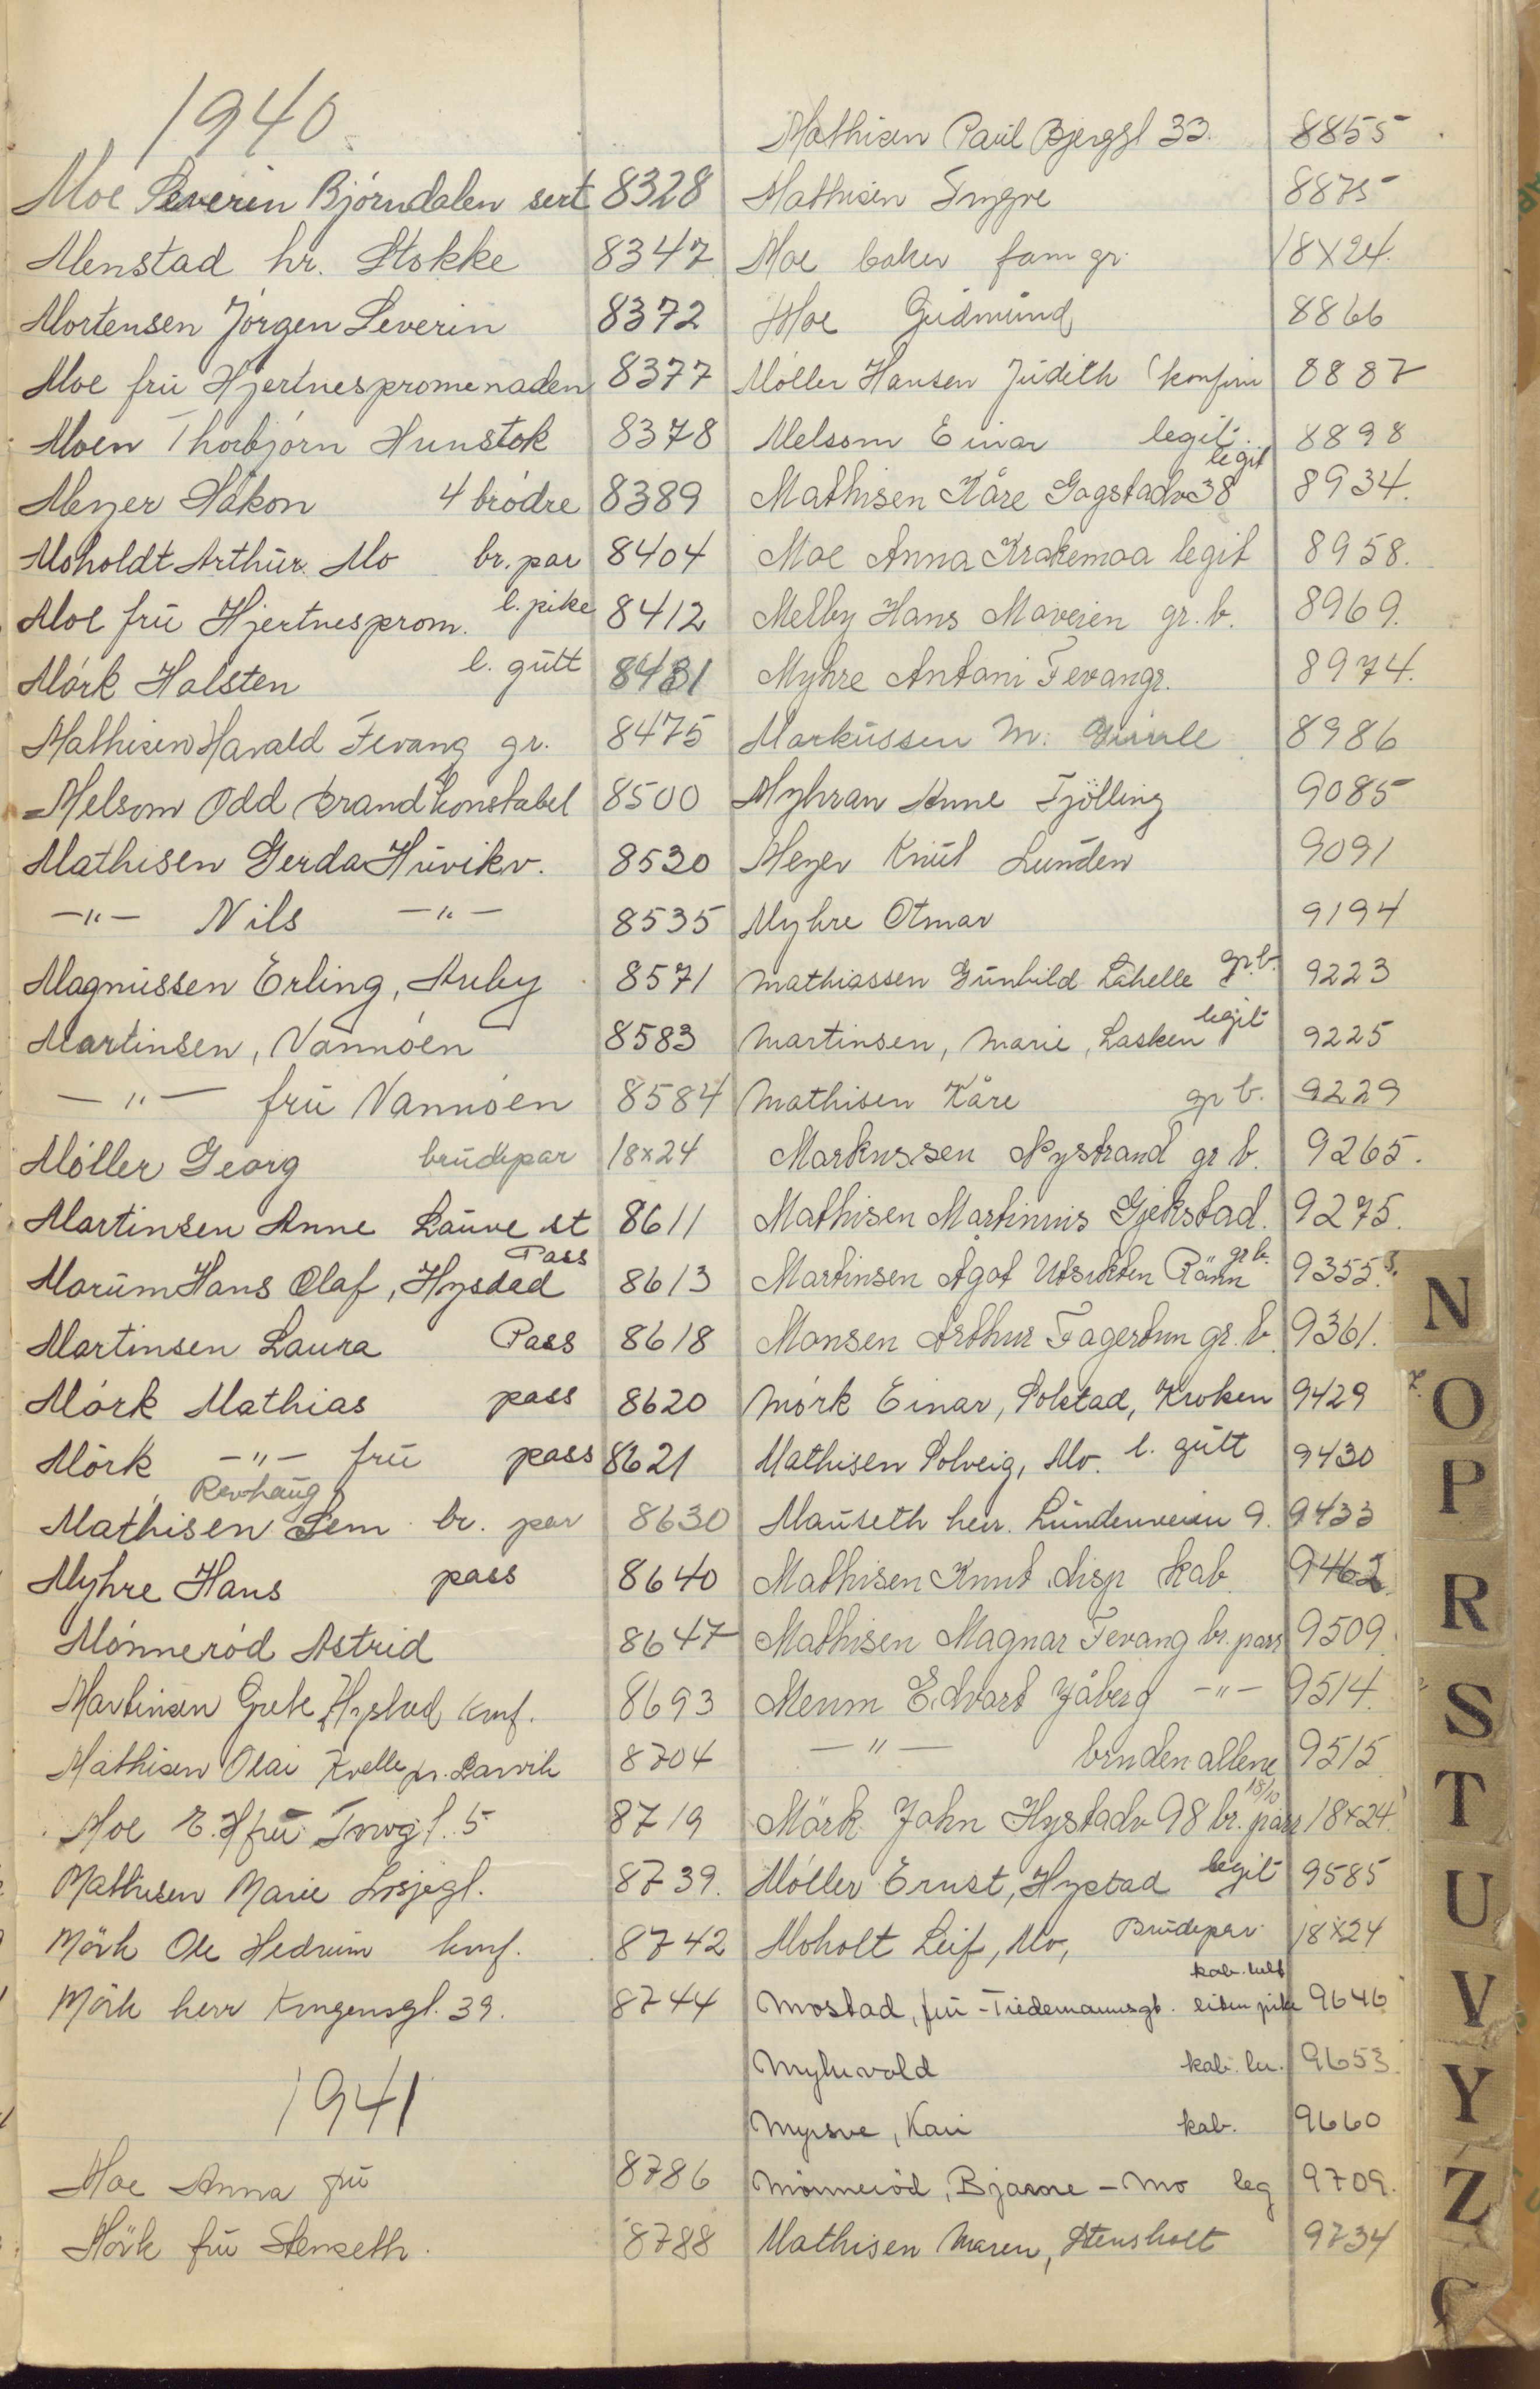 1940.
Moe Severin Bjørndalen sert 8328
Menstad hr. Stokke 8347
Mortensen Jørgen Severin 8372
Moe frū Hjertnespromenaden 8377
Moen Thorbjørn Hunstok 8378
Meyer Håkon 4 brødre 8389
Moholdt Arthūr Mo br. par 8404
Moe frū Hjertnesprom. l. pike 8412
Mørk Halsten l. gūtt 8431
Mathisen Harald Fevang gr. 8475
Melsom Odd brandkonstabel 8500
Mathisen Gerda Hūvikv. 8530
—"— Nils —"— 8535
Magnūssen Erling, Aūby 8571
Martinsen, Nannøen 8583
—"— frū Nannøen 8584
Møller Georg brūdepar 18x24
Martinsen Anne Laūve st 8611
Marūm Hans Olaf, Hystad Pass 8613
Martinsen Laura Pass 8618
Mørk Mathias pass 8620
Mørk —"— frū pass 8621
Mathisen Revhaūg Sem br. par 8630
Myhre Hans pass 8640
Mønnerød Astrid 8647
Martinsen Grete Hystad konf. 8693
Mathisen Olai Kvelle pr. Larvik 8704
Moe E. H frū 5 8719
Mathisen Marie 8739.
Mörk Ole Hedrum konf. 8742
Mörk herr Kongensgt. 39. 8744
1941
Moe Anna frū 8786
Mörk frū Stenseth. 8788
Mathisen Paūl Bjerggt 33. 8855
Mathisen Yngve 8875
Moe baker fam gr. 18X24.
Moe Gūdmūnd 8866
Møller Hansen Jūdith (konfirm 8887
Melsom Einar legit. 8898
Mathisen Kåre Gogstadv 38 legit 8934.
Moe Anna Krakemoa legit 8958.
Melby Hans Moveien gr. b. 8969.
Myhre Antoni Fevang gr. 8974.
Markūssen M. 8986
Myhran Anne Tjölling 9085
Meyer Knūt Lunden 9091
Myhre Otmar 9194
Mathiassen Gūnhild Låhelle gr. b. 9223
Martinsen, Marie, Lasken legit 9225
Mathisen Kåre gr b. 9229
Markussen Nystrand gr b. 9265.
Mathisen Martinius Gjekstad. 9275.
Martinsen Agot Utsikten Råen gr b. 9355.
Monsen Arthur Fagertun gr. b. 9361.
Mørk Einar, Solstad, Kroken 9429
Mathisen Solveig, Mo. l. gūtt 9430
Maūseth herr. Lūndenveien 9. 9433
Mathisen Knut disp kab. 9462
Mathisen Magnar Fevang br. par 9509.
Merum Edvart Jåberg —"— 9514.
—"— bruden allene 9515
Mörk John Hystadv 98 br. par 18/10 18x24.
Møller Ernst, Hystad legit 9585
Moholt Leif, Mo, Brūdepar 18X24
Mostad, frū - Tiedemannsgt. liten pike kab. kult 9646
Myhrvold kab. 9653.
Myrsve, Kari kab. 9660
Mönneröd, Bjarne - Mo leg 9709.
Mathisen Maren, Stensholt 9734
N
O
P
R
S
T
U
V
Y
Z